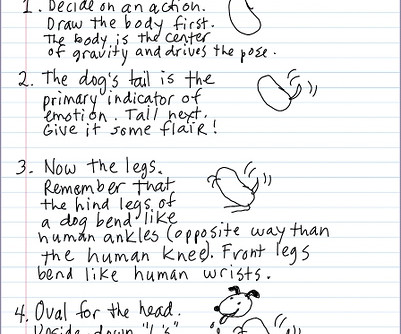 1. Decide on an action.
Draw the body first.
The body is the center
of gravity and drives the pose.
2. The dog's tail is the
primary indicator of
emotion. Tail next.
Give it some flair!
3. Now the legs.
Remember that
the hind legs of
a dog bend like
human ankles (opposite way than
the human knee). Front legs
bend like human wrists.
4. Oval for the head.
Upside down "L's"